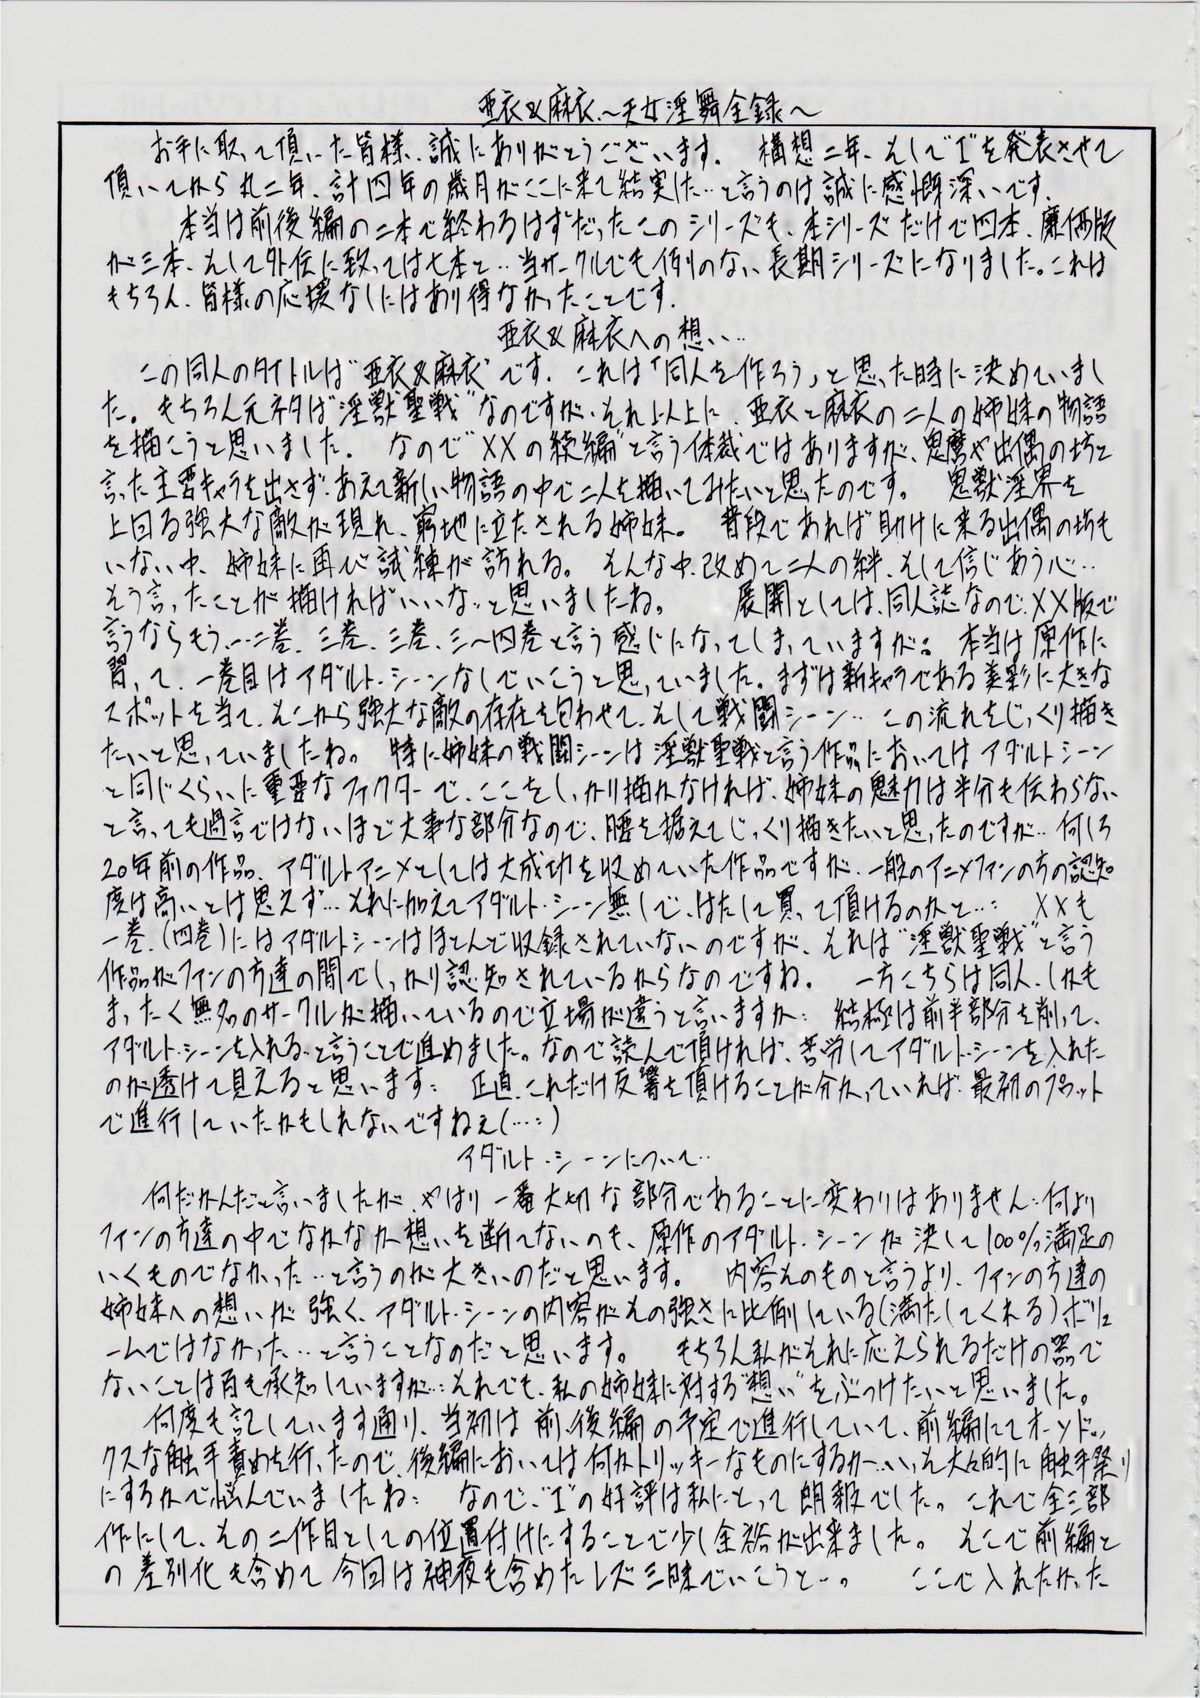 亜衣&麻衣～天女淫舞全録～
お手に取って頂いた皆様、誠にありがとうございます。 構想二年、そして"Ⅰ"を発表させて
頂いてから丸二年、計四年の歳月がここに来て結実した…と言うのは誠に感慨深いです。
本当は前後編の二本で終わるはずだったこのシリーズも、本シリーズだけで四本、廉価版
が三本、そして外伝に致っては七本と…当サークルでも例のない長期シリーズになりました。これは
もちろん、皆様の応援なしにはあり得なかったことです。
亜衣&麻衣への想い…
この同人のタイトルは"亜衣&麻衣"です。これは「同人を作ろう」と思った時に決めていまし
た。もちろん元ネタは"淫獣聖戦"なのですが、それ以上に、亜衣と麻衣の二人の姉妹の物語
を描こうと思いました。 なので"XXの続編"と言う体裁ではありますが、鬼麿や出偶の坊と
言った主要キャラを出さず、あえて新しい物語の中で二人を描いてみたいと思ったのです。 鬼獣淫界を
上回る強大な敵が現れ、窮地に立たされる姉妹。 普段であれば助けに来る出偶の坊も
いない中、姉妹に再び試練が訪れる。 そんな中、改めて二人の絆、そして信じあう心…
そう言ったことが描ければいいな…と思いましたね。 展開としては、同人誌なので、XX版で
言うならもう…二巻、三巻、三巻、三～四巻と言う感じになってしまっていますが。 本当は原作に
習って、一巻目はアダルト・シーンなしでいこうと思っていました。まずは新キャラである美彩に大きな
スポットを当て、そこから強大な敵の存在を匂わせて、そして戦闘シーン…この流れをじっくり描き
たいと思っていましたね。 特に姉妹の戦闘シーンは淫獣聖戦と言う作品においてはアダルトシーン
と同じくらいに重要なファクターで、ここをしっかり描かなければ、姉妹の魅力は半分も伝わらない
と言っても過言ではないほど大事な部分なので、腰を据えてじっくり描きたいと思ったのですが…何しろ
20年前の作品、アダルトアニメとしては大成功を収めていた作品ですが、一般のアニメファンの方の認知
度は高いとは思えず…それに加えてアダルト・シーン無しで、はたして買って頂けるのかと…: XXも
一巻、(四巻)にはアダルトシーンはほとんど収録されていないのですが、それは"淫獣聖戦"と言う
作品がファンの方達の間でしっかり認知されているからなのですね。 一方こちらは同人、しかも
まったく無名のサークルが描いているので立場が違うと言いますか: 結極は前半部分を削って、
アダルト・シーンを入れる…と言うことで進めました。なので読んで頂ければ、苦労してアダルト・シーンを入れた
のが透けて見えると思います: 正直、これだけ反響を頂けることが分かっていれば、最初のプロット
で進行していたかもしれないですねぇ(…:)
アダルト・シーンについて…
何だかんだと言いましたが、やはり一番大切な部分であることに変わりはありません…何より
ファンの方達の中でなかなか想いを断てないのも、原作のアダルト・シーンが決して100%満足の
いくものでなかった…と言うのが大きいのだと思います。 内容そのものと言うより、ファンの方達の
姉妹への想いが強く、アダルト・シーンの内容がその強さに比例している(満たしてくれる)ボリュ
ームではなかった…と言うことなのだと思います。 もちろん私がそれに応えられるだけの器で
ないことは百も承知していますが…:それでも、私の姉妹に対する"想い"をぶつけたいと思いました。
何度も記しています通り、当初は前、後編の予定で進行していて、前編にてオーソドッ
クスな触手責めを行ったので、後編においては何かトリッキーなものにするか…いっそ大々的に触手祭り
にするかで悩んでいましたね: なので、"Ⅰ"の好評は私にとって朗報でした。これで全三部
作にして、その二作目としての位置付けにすることで少し余裕が出来ました。 そこで前編と
の差別化も含めて今回は神夜も含めたレズ三昧でいこうと…。 ここで入れたかった